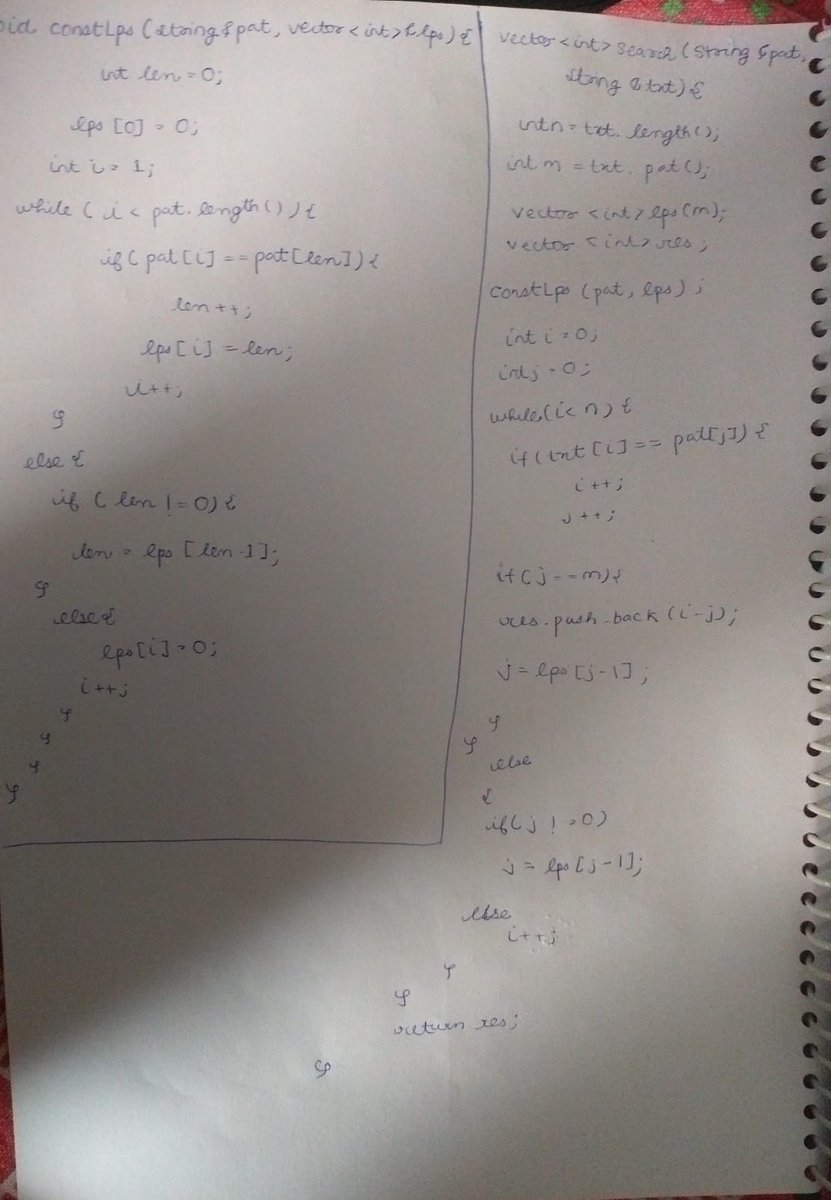 void constLps (string &pat, vector<int>& lps) {
int len = 0;
lps [0] = 0;
int i = 1;
while ( i < pat. length ( ) ) {
if ( pat [i] == pat [len] ) {
len ++;
lps [ i ] = len;
i++;
}
else {
if ( len ! = 0) {
len = lps [len -1];
}
else {
lps [i] = 0;
i ++;
}
}
}
}
vector <int> search (string &pat,
string &txt) {
int n = txt. length ();
int m = txt. pat ();
vector <int> lps (m);
vector <int> res ;
constLps (pat, lps) ;
int i = 0;
int j = 0;
while (i < n) {
if (txt [i] == pat[j]) {
i ++;
j ++;
if ( j == m) {
res. push_back (i-j);
j = lps [j-1] ;
}
}
else
{
if ( j ! = 0)
j = lps [j-1];
else
i ++;
}
}
return res;
}